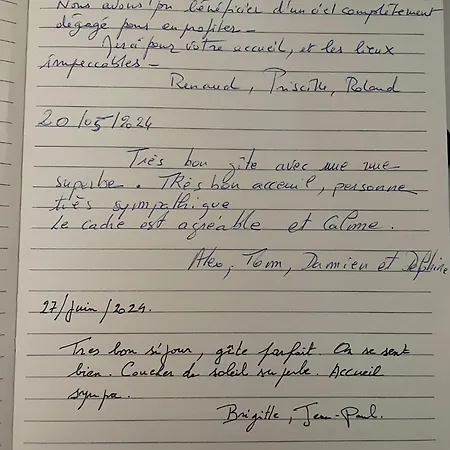 Nous avons pu bénéficier d'un ciel complètement
dégagé pour en profiter -
Merci pour votre accueil, et les lieux
impeccables -
Renaud, Priscille, Roland
20/05/2024
Très bon gîte avec une vue
superbe. TRès bon accueil, personne
très sympathique
Le cadre est agréable et calme.
Alex, Tom, Damien et Delphine
27/juin/2024.
Tres bon séjour, gîte parfait. On se sent
bien. Coucher de soleil superbe. Accueil
sympa.
Brigitte, Jean-Paul.